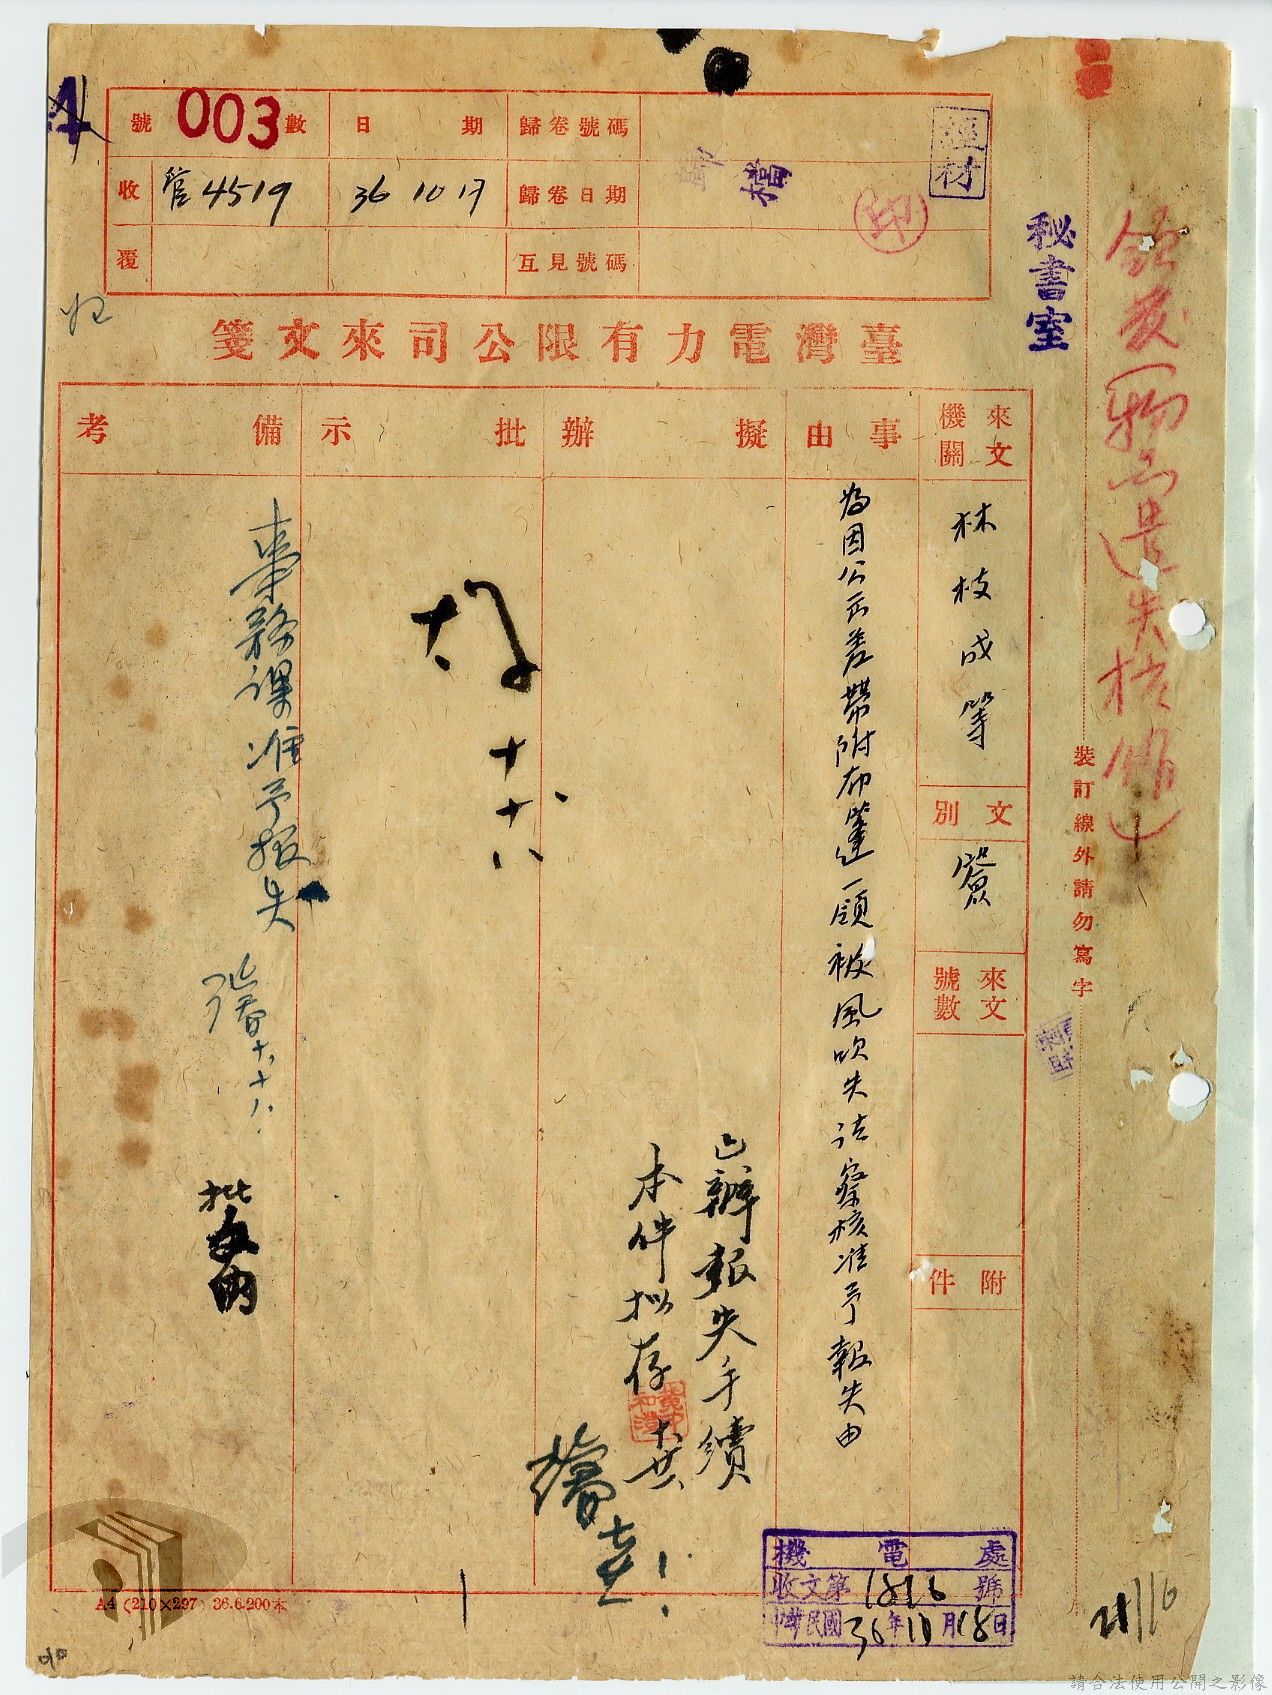 號 003 數
日 期
歸卷號碼
收 管4519
36 10 17
歸卷日期
歸檔
印
覆
互見號碼
經材
秘書室
臺灣電力有限公司來文箋
來文機關
事由
擬辦
批示
備考
林枝成等
文別
簽
來文號數
附件
為因公而差帶附布篷一領被風吹失請察核准予報失由
已辦報失手續
本件拟存
十八
業務課准予報失
裝訂線外請勿寫字
機電處
收文第 號
中華民國36年10月18日
A4 (210×297) 36.6.200本
請合法使用公開之影像